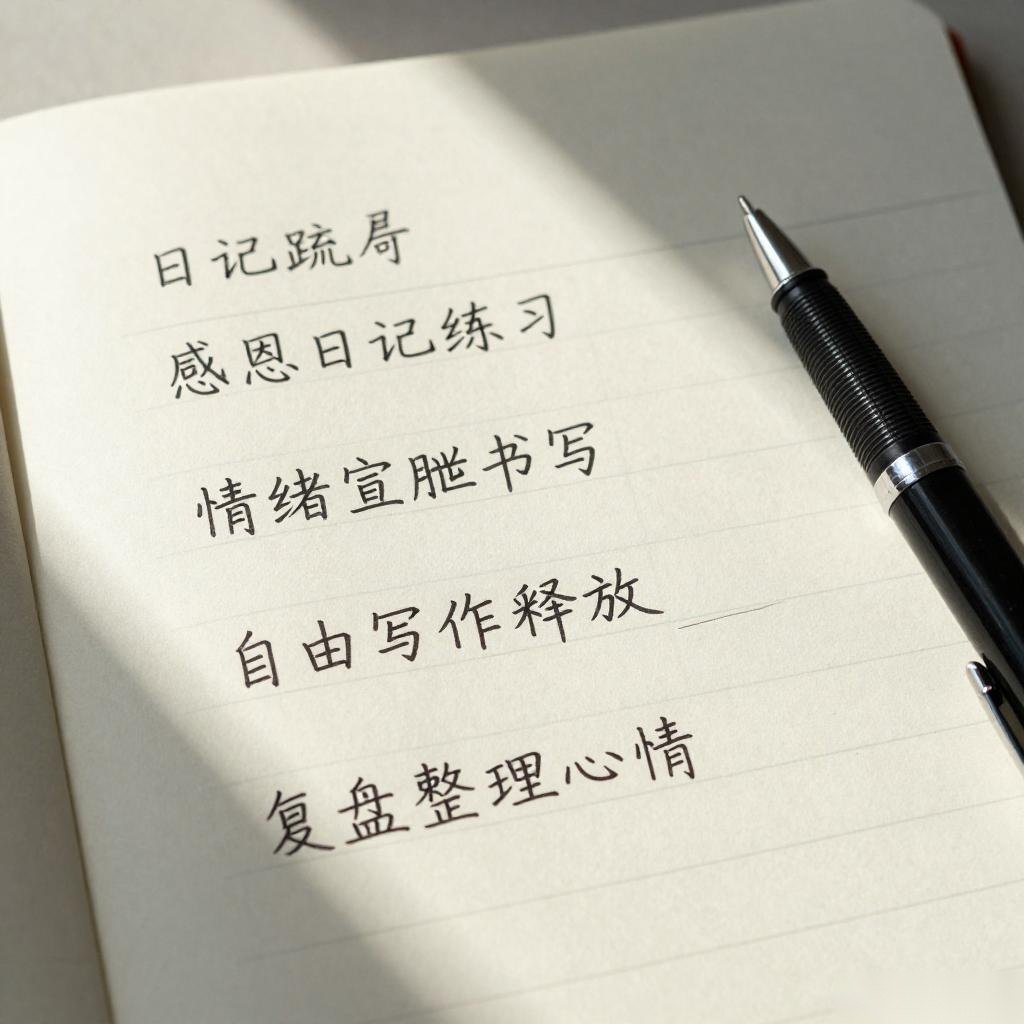 日记
感恩日记练习
情绪宣书写
自由写作释放
复盘整理心情